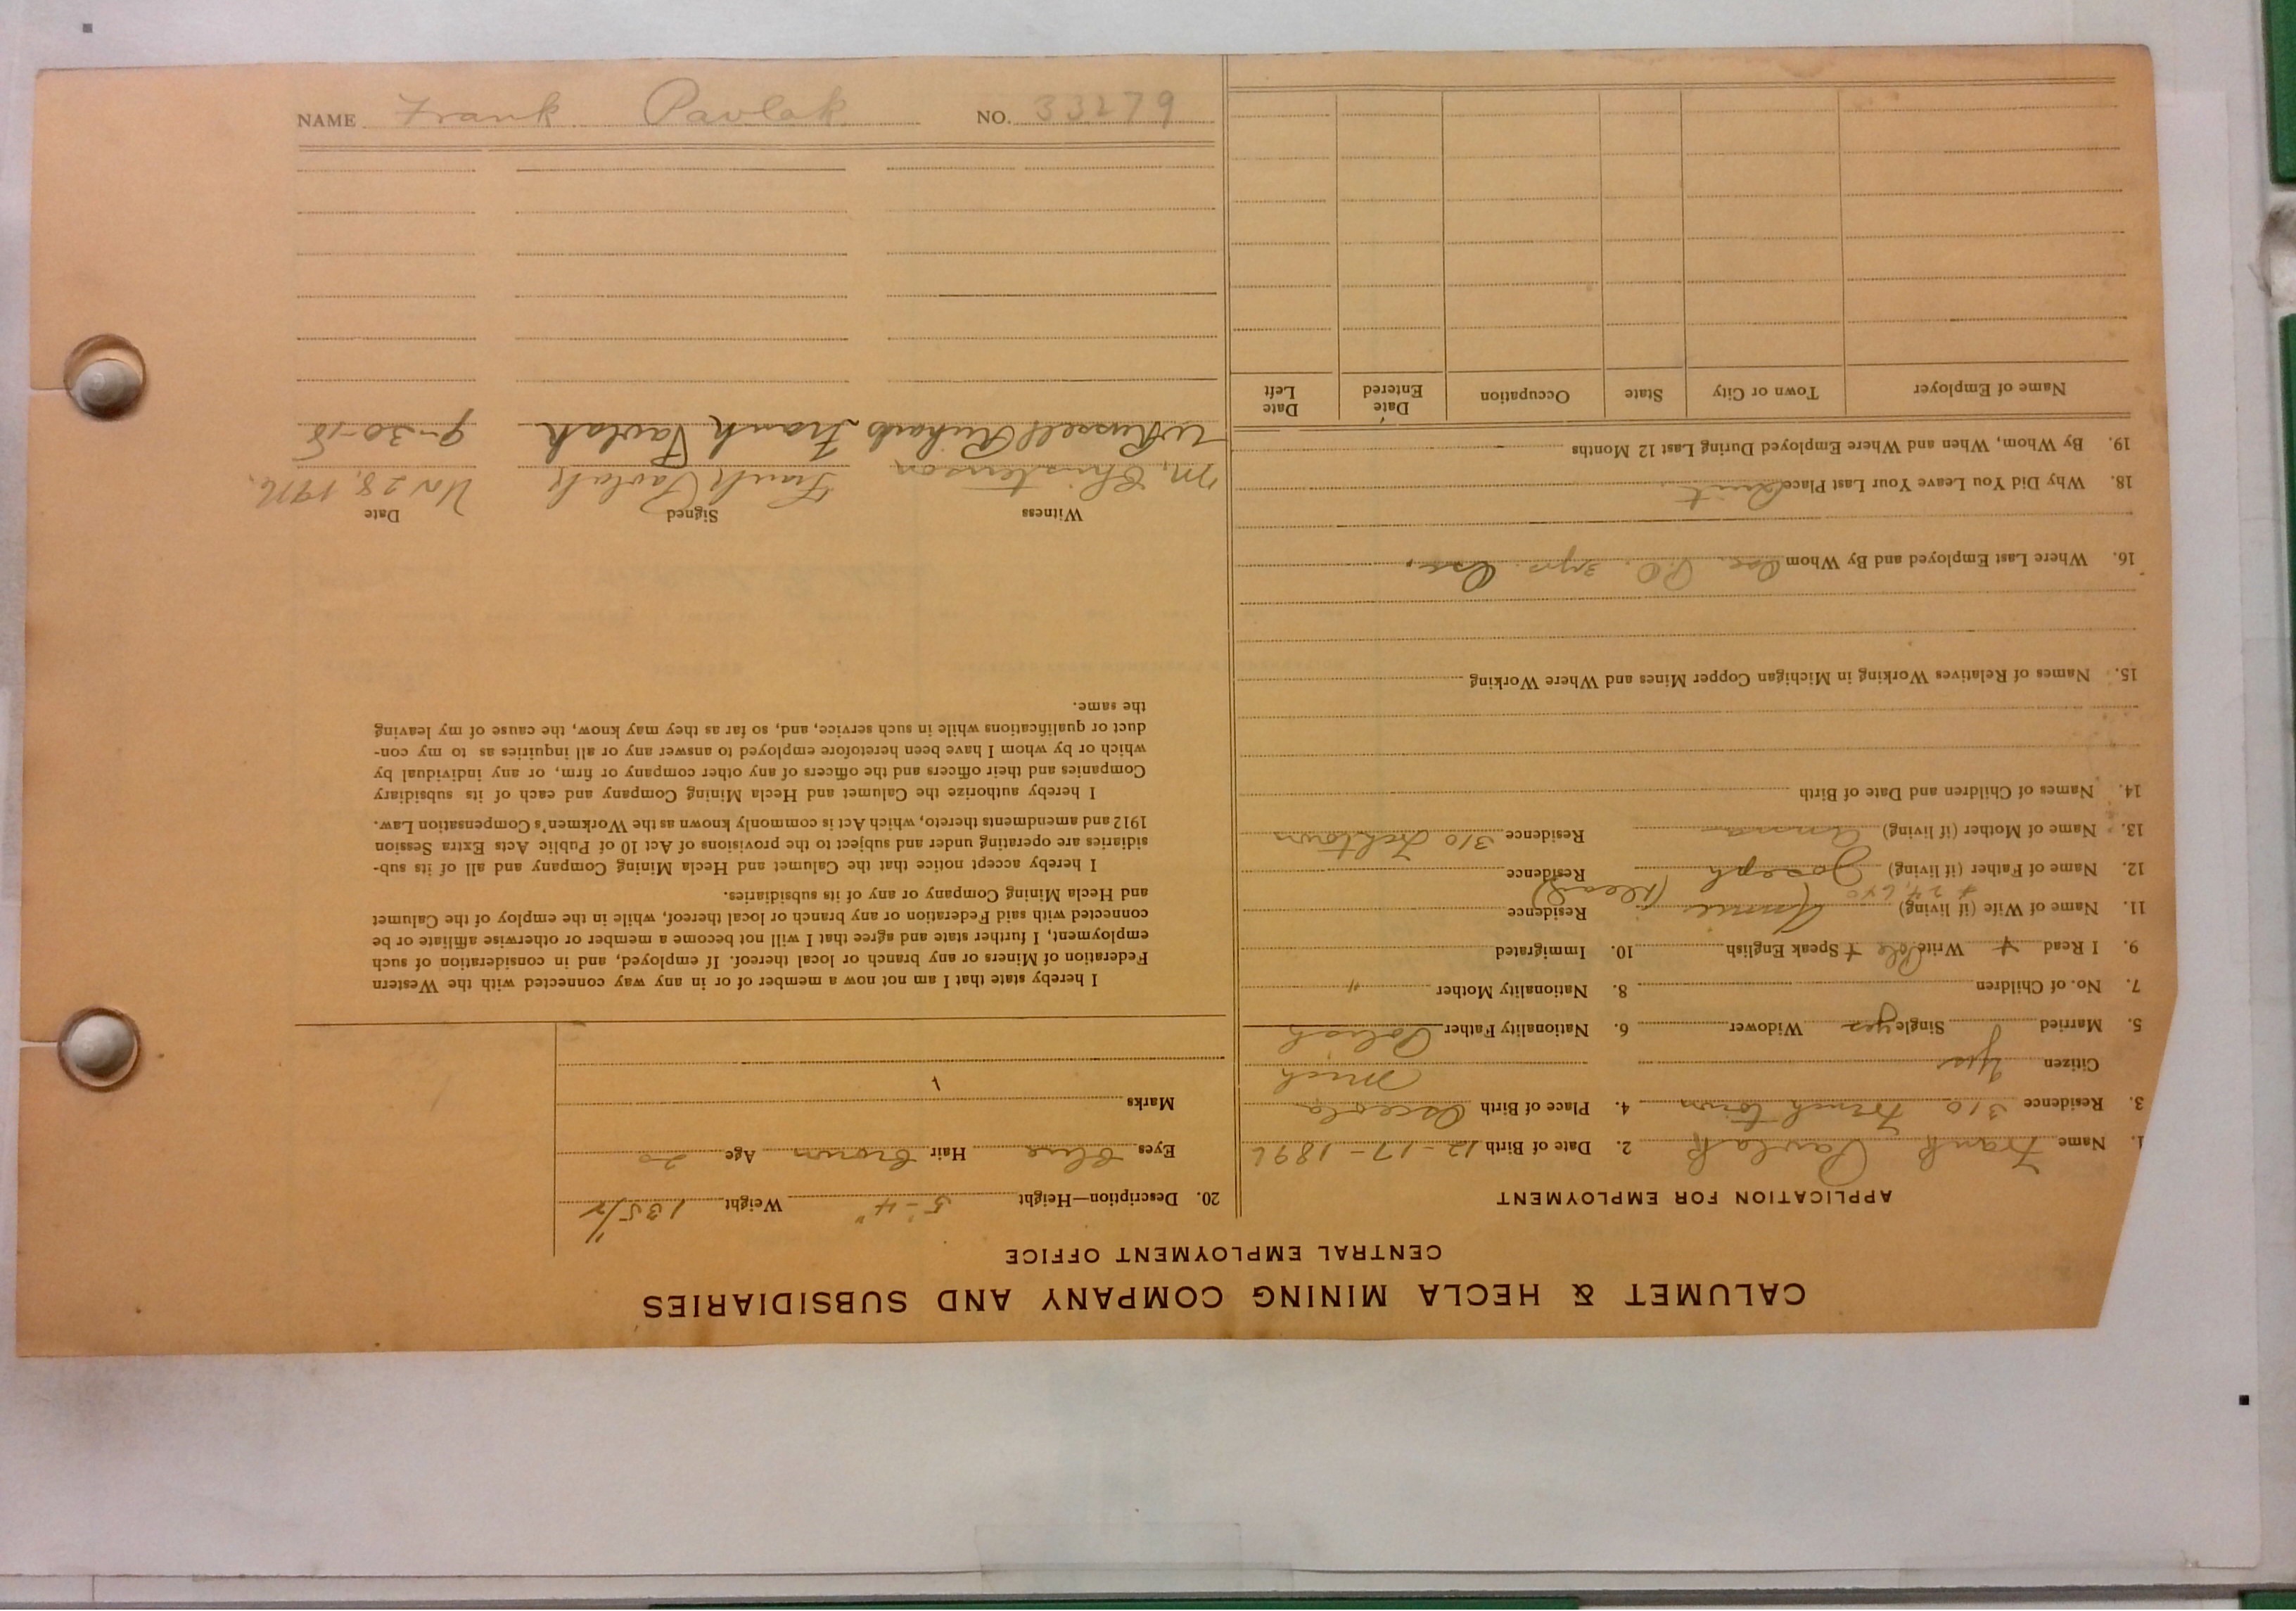 CALUMET & HECLA MINING COMPANY AND SUBSIDIARIES
CENTRAL EMPLOYMENT OFFICE
APPLICATION FOR EMPLOYMENT
1. Name Frank Pavlak 2. Date of Birth 12-17-1896
3. Residence 310 Frenchtown 4. Place of Birth Osceola
Mich
Citizen Yes
5. Married Single yes Widower 6. Nationality Father Polish
7. No. of Children 8. Nationality Mother "
9. I Read + Write Pole + Speak English 10. Immigrated
11. Name of Wife (if living) Annie Residence
12. Name of Father (if living) Joseph (Dead) Residence
13. Name of Mother (if living) Anna Residence 310 Fchtown
14. Names of Children and Date of Birth
15. Names of Relatives Working in Michigan Copper Mines and Where Working
16. Where Last Employed and By Whom Osc. 3 yrs. Osc.
18. Why Did You Leave Your Last Place Quit
19. By Whom, When and Where Employed During Last 12 Months
Name of Employer Town or City State Occupation Date Entered Date Left
20. Description—Height 5'-4" Weight 135 1/2
Eyes Blue Hair Brown Age 20
Marks
I hereby state that I am not now a member of or in any way connected with the Western
Federation of Miners or any branch or local thereof. If employed, and in consideration of such
employment, I further state and agree that I will not become a member or otherwise affiliate or be
connected with said Federation or any branch or local thereof, while in the employ of the Calumet
and Hecla Mining Company or any of its subsidiaries.
I hereby accept notice that the Calumet and Hecla Mining Company and all of its sub-
sidiaries are operating under and subject to the provisions of Act 10 of Public Acts Extra Session
1912 and amendments thereto, which Act is commonly known as the Workmen's Compensation Law.
I hereby authorize the Calumet and Hecla Mining Company and each of its subsidiary
Companies and their officers and the officers of any other company or firm, or any individual by
which or by whom I have been heretofore employed to answer any or all inquiries as to my con-
duct or qualifications while in such service, and, so far as they may know, the cause of my leaving
the same.
Witness Signed Date
M. Christenson Frank Pavlak 28, 1916.
W Russell Richards Frank Pavlak 9-30-18
NAME Frank Pavlak NO. 33279